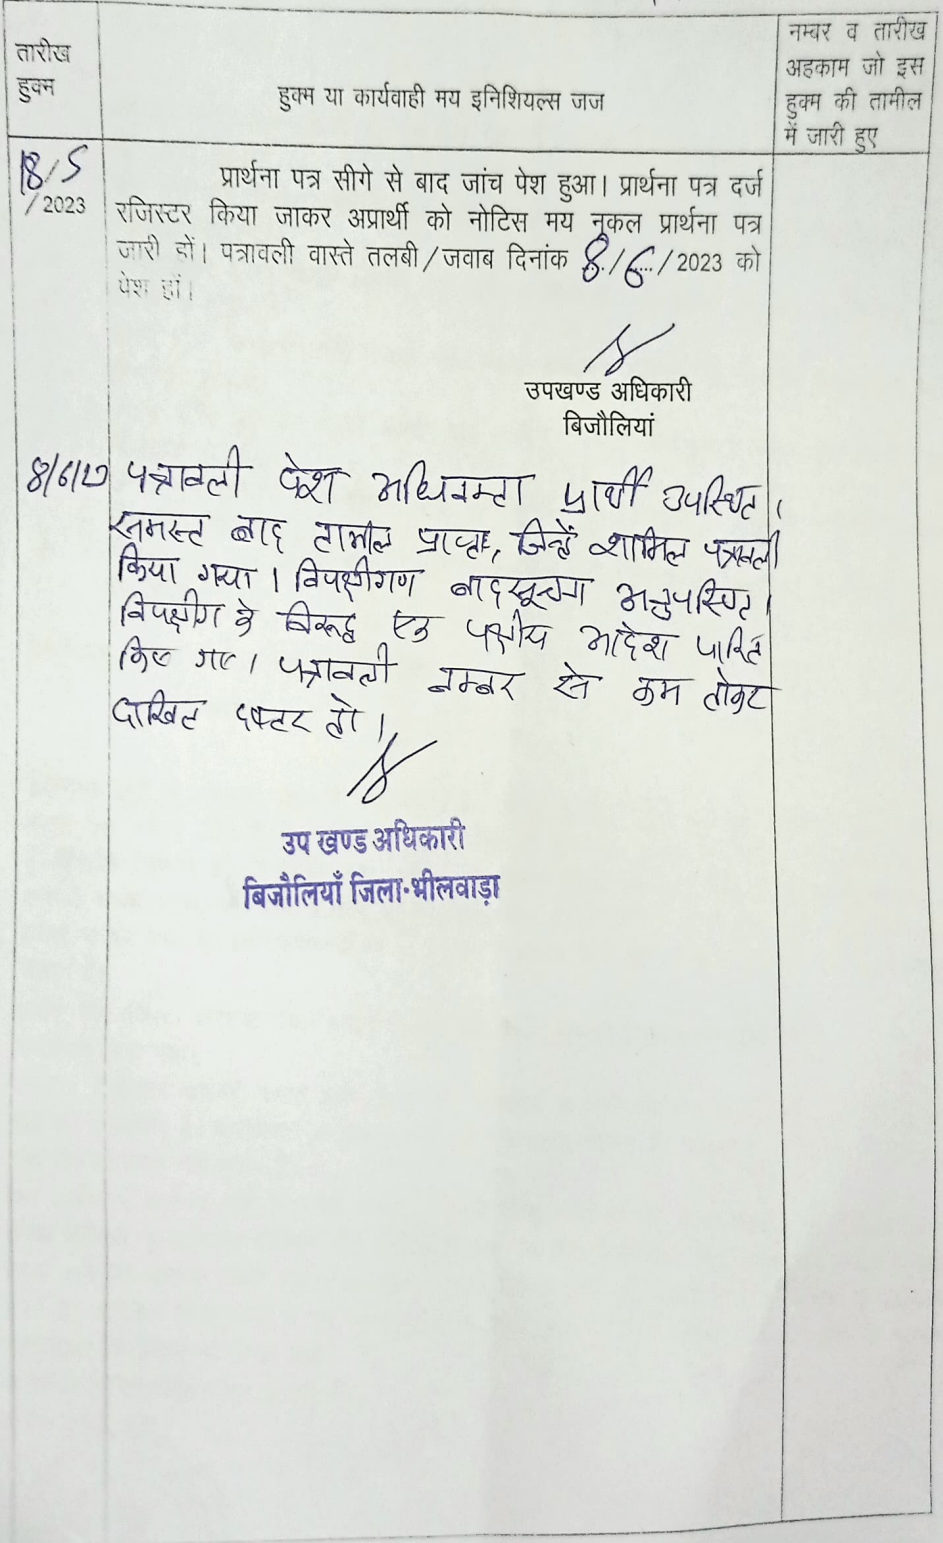 तारीख
हुक्म
हुक्म या कार्यवाही मय इनिशियल्स जज
नम्बर व तारीख
अहकाम जो इस
हुक्म की तामील
में जारी हुए
18/5
/2023
प्रार्थना पत्र सीगे से बाद जांच पेश हुआ। प्रार्थना पत्र दर्ज
रजिस्टर किया जाकर अप्रार्थी को नोटिस मय नुकल प्रार्थना पत्र
जारी हों। पत्रावली वास्ते तलबी/जवाब दिनांक 8/6/2023 को
पेश हों।
उपखण्ड अधिकारी
बिजौलियां
8/6/23 पत्रावली पेश अधिवक्ता प्रार्थी उपस्थित।
समस्त बाद तामील प्राप्त, जिन्हें शामिल पत्रावली
किया गया। विपक्षीगण बादसूचना अनुपस्थित।
विपक्षीग के विरूद्ध एक पक्षीय आदेश पारित
किए गए। पत्रावली नम्बर से कम होकर
दाखिल दफ्तर हो।
उप खण्ड अधिकारी
बिजौलियाँ जिला-भीलवाड़ा